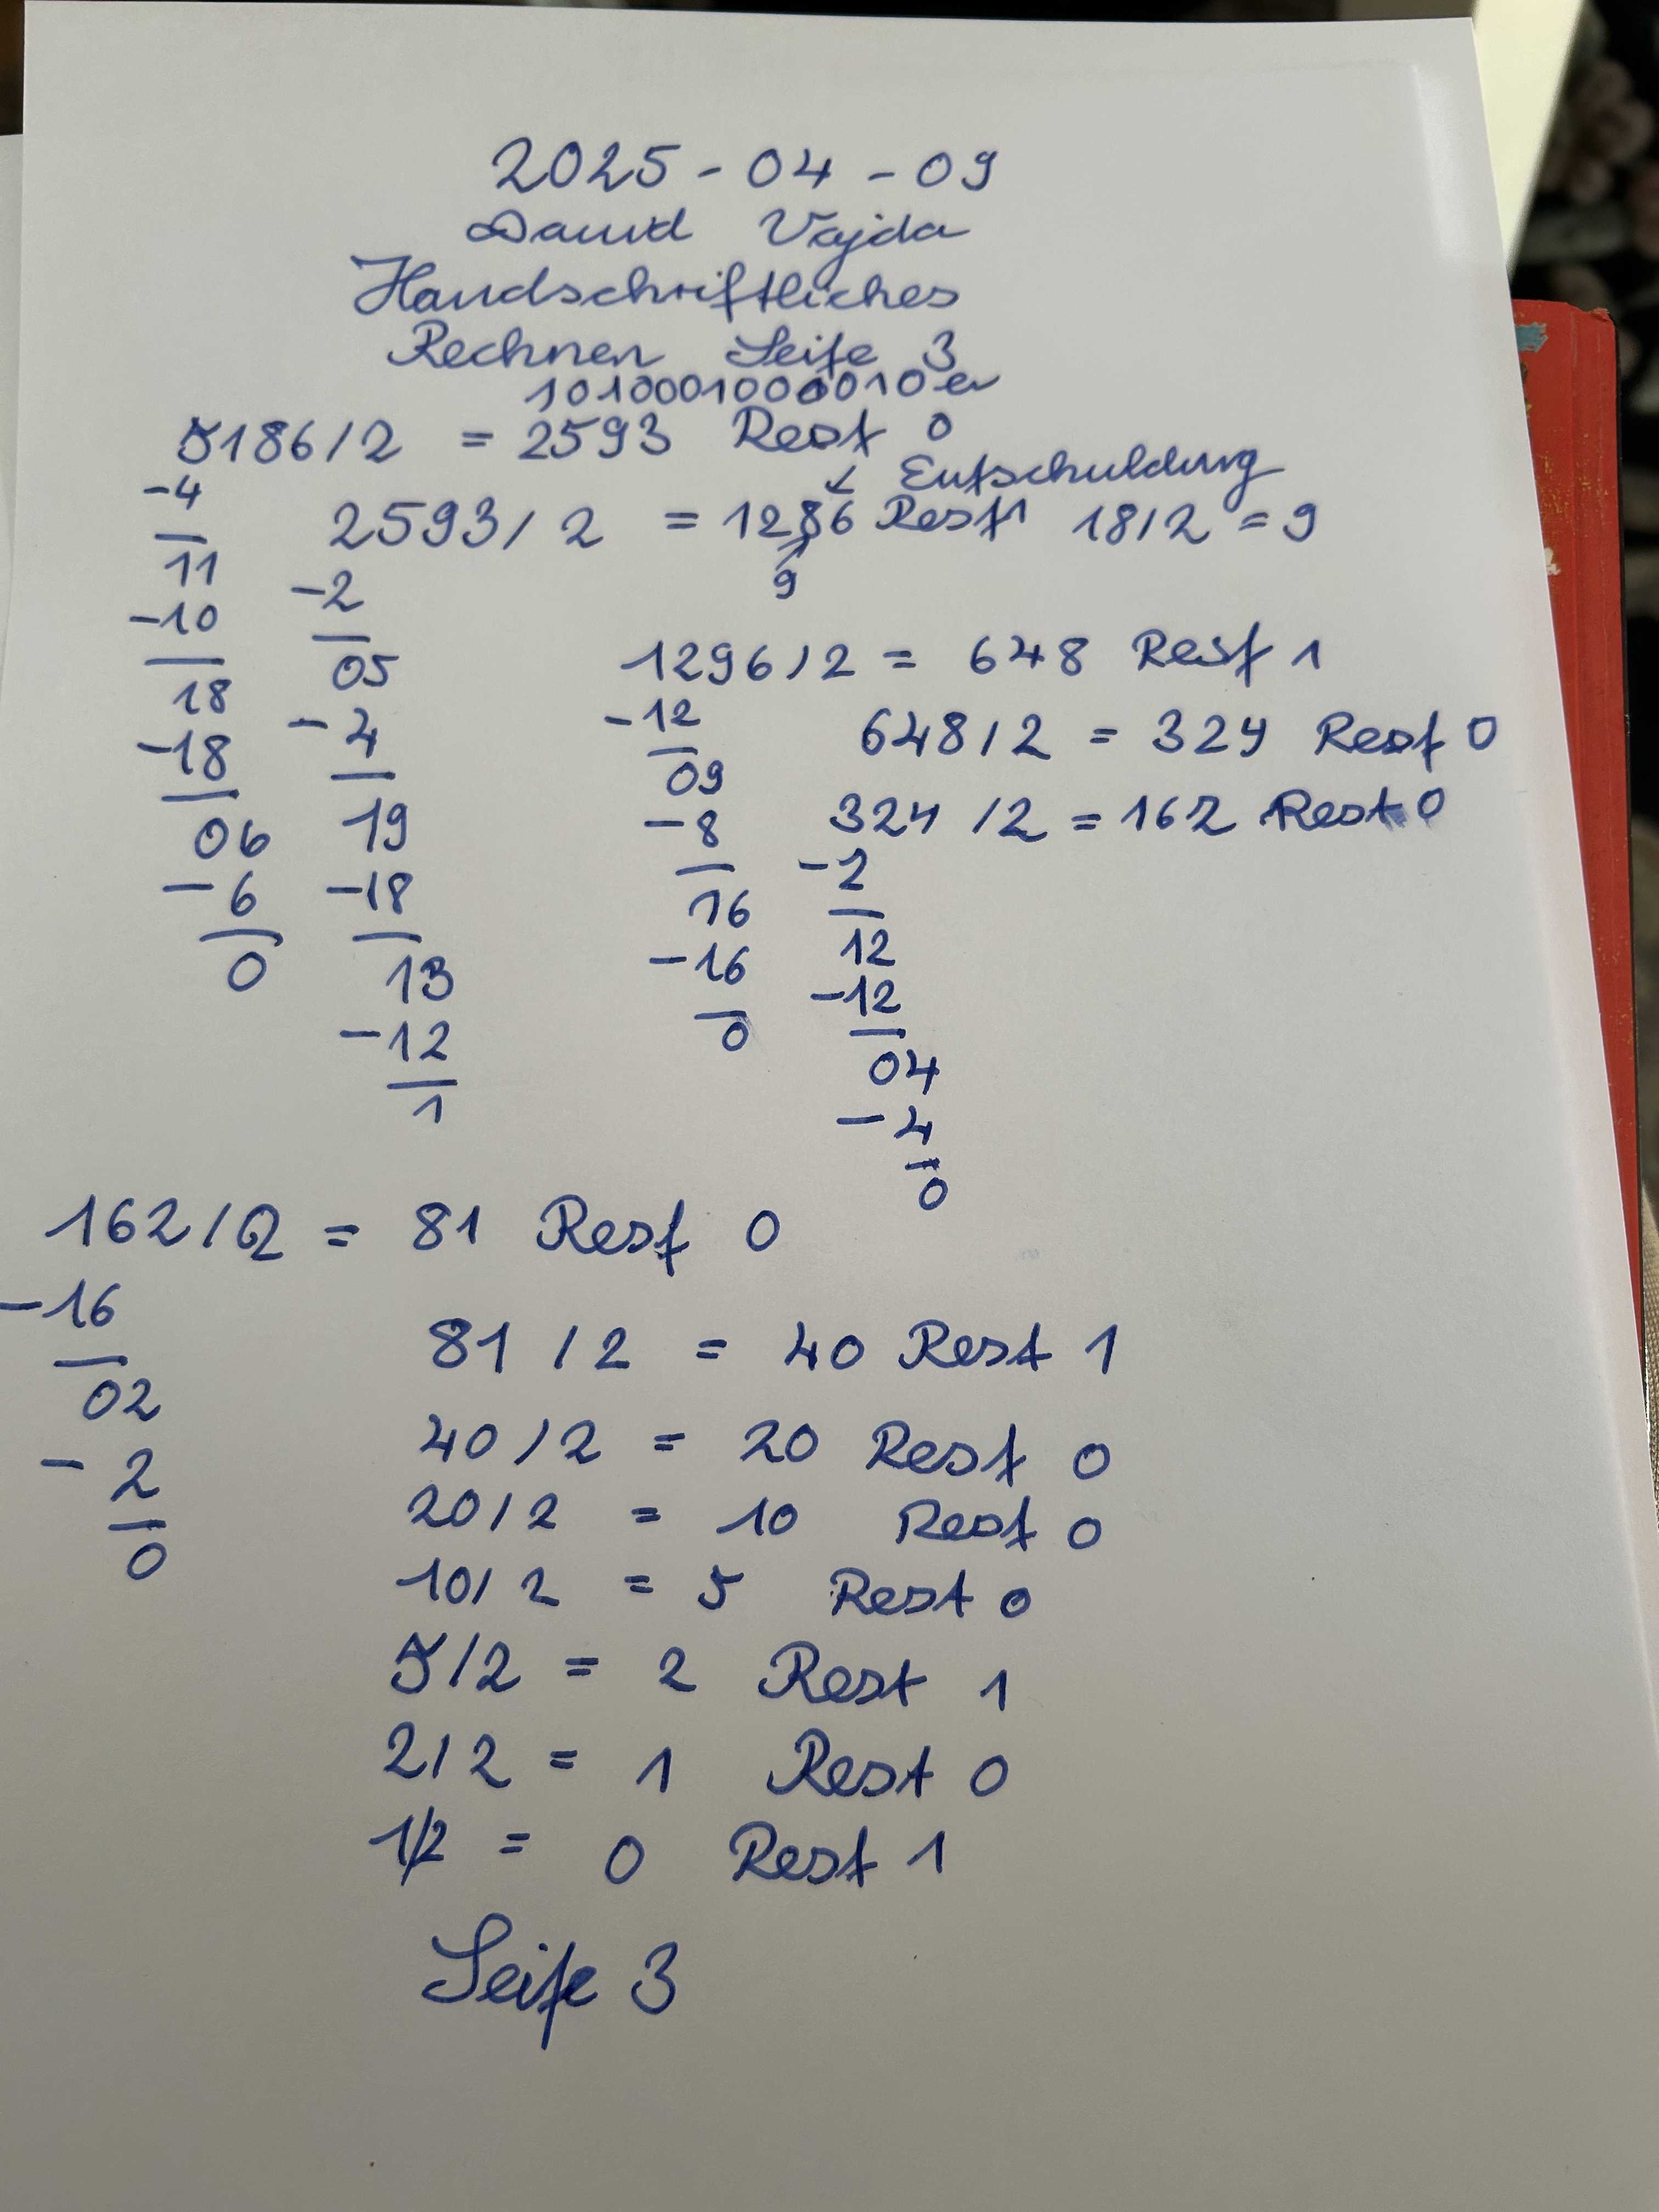 2025-04-09
David Vajda
Handschriftliches
Rechnen Seite 3
1010001000010
5186/2 = 2593 Rest 0
Entschuldung
2593/2 = 1286 Rest 1 18/2 = 9
9
-4
11
-10
18
-18
06
-6
0
-2
05
-4
19
-18
13
-12
1
1296/2 = 648 Rest 1
-12
09
-8
16
-16
0
648/2 = 324 Rest 0
324/2 = 162 Rest 0
-2
12
-12
04
-4
0
162/2 = 81 Rest 0
-16
02
-2
0
81/2 = 40 Rest 1
40/2 = 20 Rest 0
20/2 = 10 Rest 0
10/2 = 5 Rest 0
5/2 = 2 Rest 1
2/2 = 1 Rest 0
1/2 = 0 Rest 1
Seite 3